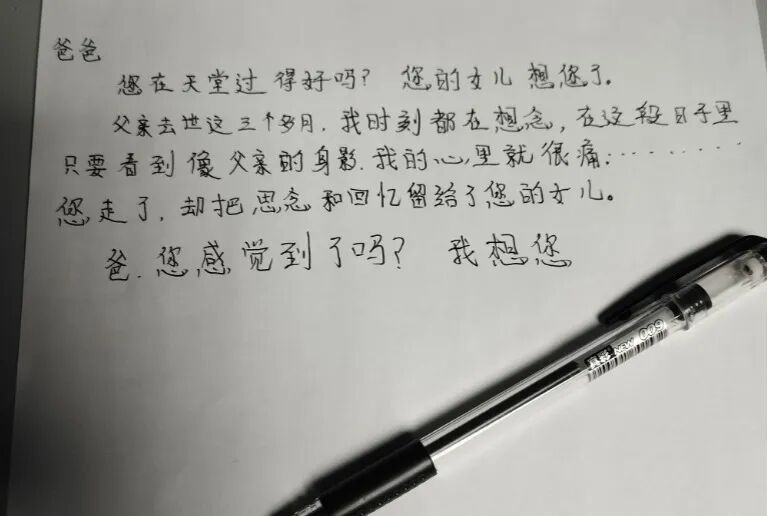 爸爸
您在天堂过得好吗？ 您的女儿想您了。
父亲去世这三个多月，我时刻都在想念，在这段日子里
只要看到像父亲的身影，我的心里就很痛…………
您走了，却把思念和回忆留给了您的女儿。
爸，您感觉到了吗？ 我想您
真彩 NEW 009